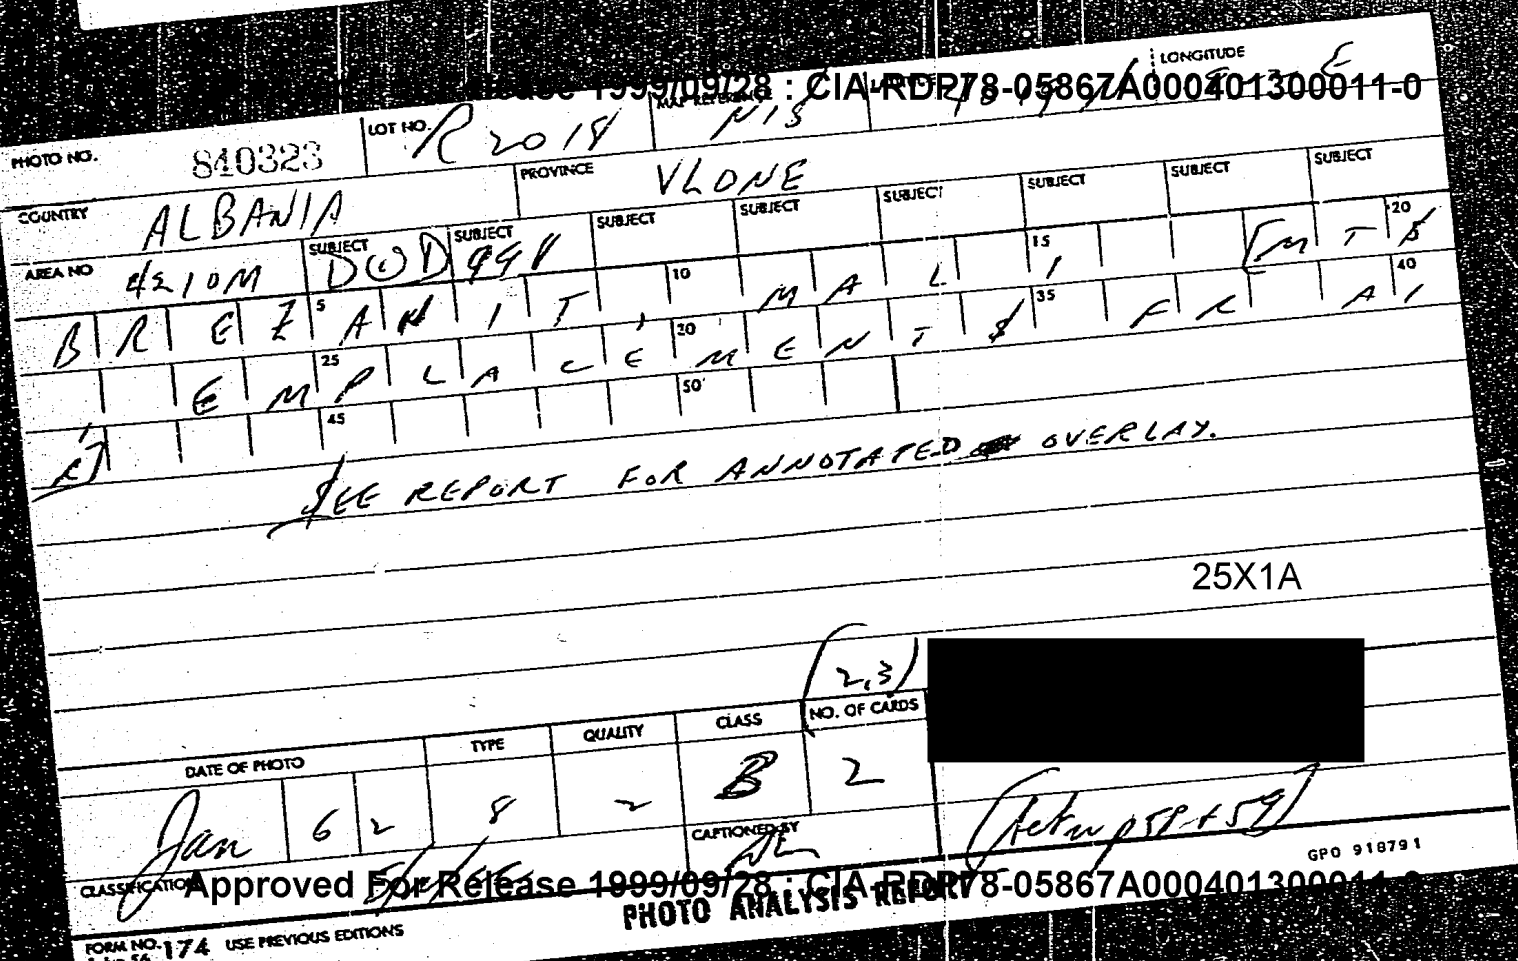 LONGITUDE
1999/09/28 : CIA-RDP78-05867A000401300011-0
PHOTO NO. 840323 LOT NO. R 2018 MAP REFERENCE NIS
COUNTRY ALBANIA PROVINCE VLONE
AREA NO SUBJECT SUBJECT SUBJECT SUBJECT SUBJECT SUBJECT SUBJECT SUBJECT
BREZ 5 ANIT, 10 MAL 15 I [MTS 20
EMP 25 LACE 30 MENTS 35 FR A 40
45 50
SEE REPORT FOR ANNOTATED OVERLAY.
25X1A
(2,3)
DATE OF PHOTO TYPE QUALITY CLASS NO. OF CARDS
Jan 62 8 2 B 2
CAPTIONED BY
GPO 918791
CLASSIFICATION Approved For Release 1999/09/28 : CIA-RDP78-05867A000401300011-0
PHOTO ANALYSIS REPORT
FORM NO. 174 USE PREVIOUS EDITIONS